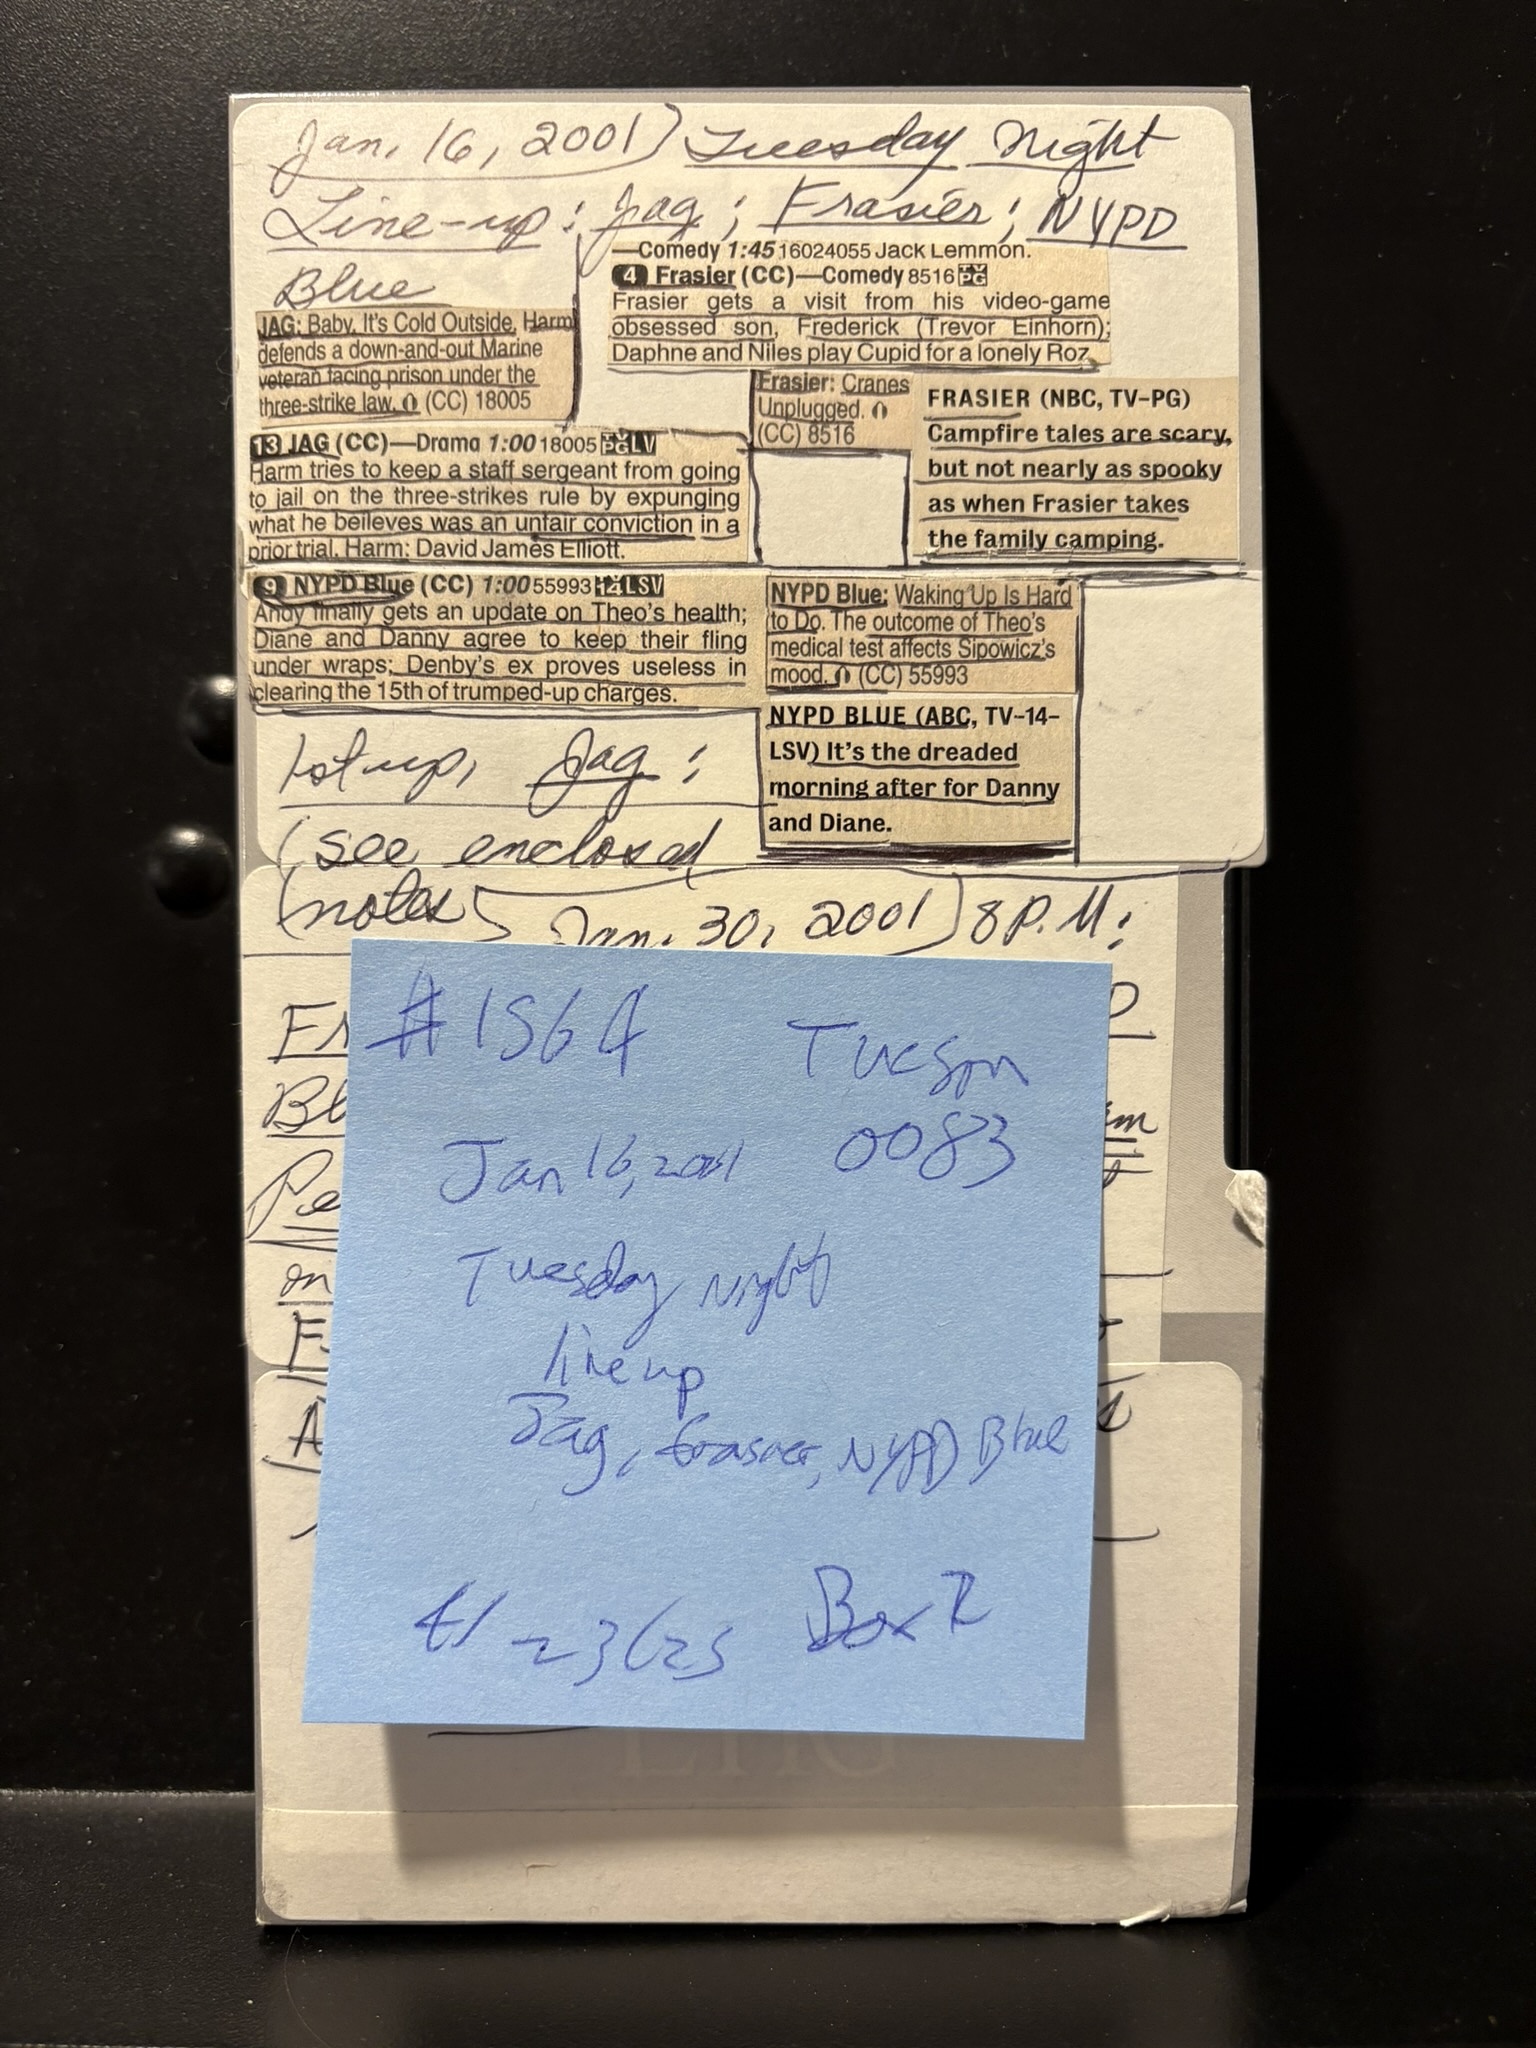 Jan. 16, 2001) Tuesday Night
Line-up: Jag; Frasier; NYPD
Blue
—Comedy 1:45 16024055 Jack Lemmon.
4 Frasier (CC)—Comedy 8516 TV PG
Frasier gets a visit from his video-game
obsessed son, Frederick (Trevor Einhorn);
Daphne and Niles play Cupid for a lonely Roz.
JAG: Baby, It's Cold Outside. Harm
defends a down-and-out Marine
veteran facing prison under the
three-strike law. (CC) 18005
Frasier: Cranes
Unplugged.
(CC) 8516
FRASIER (NBC, TV-PG)
Campfire tales are scary,
but not nearly as spooky
as when Frasier takes
the family camping.
13 JAG (CC)—Drama 1:00 18005 TV PG LV
Harm tries to keep a staff sergeant from going
to jail on the three-strikes rule by expunging
what he beileves was an unfair conviction in a
prior trial. Harm: David James Elliott.
9 NYPD Blue (CC) 1:00 55993 TV 14 LSV
Andy finally gets an update on Theo's health;
Diane and Danny agree to keep their fling
under wraps; Denby's ex proves useless in
clearing the 15th of trumped-up charges.
NYPD Blue: Waking Up Is Hard
to Do. The outcome of Theo's
medical test affects Sipowicz's
mood. (CC) 55993
NYPD BLUE (ABC, TV-14-
LSV) It's the dreaded
morning after for Danny
and Diane.
1st up, Jag:
(see enclosed
(notes)
Jan. 30, 2001) 8 P.M:
Fr
Bl
Pe
on
F
A
#1564 Tucson
0083
Jan 16, 2001
Tuesday Night
line up
Jag, frasier, NYPD Blue
Box